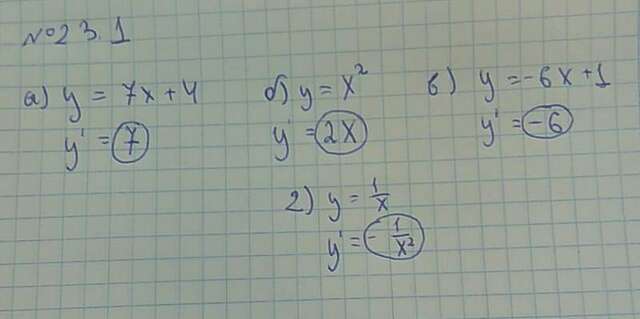 №23.1
а) y = 7x+4
y' = 7
б) y = x²
y' = 2x
в) y = -6x+1
y' = -6
г) y = 1/x
y' = - 1/x²